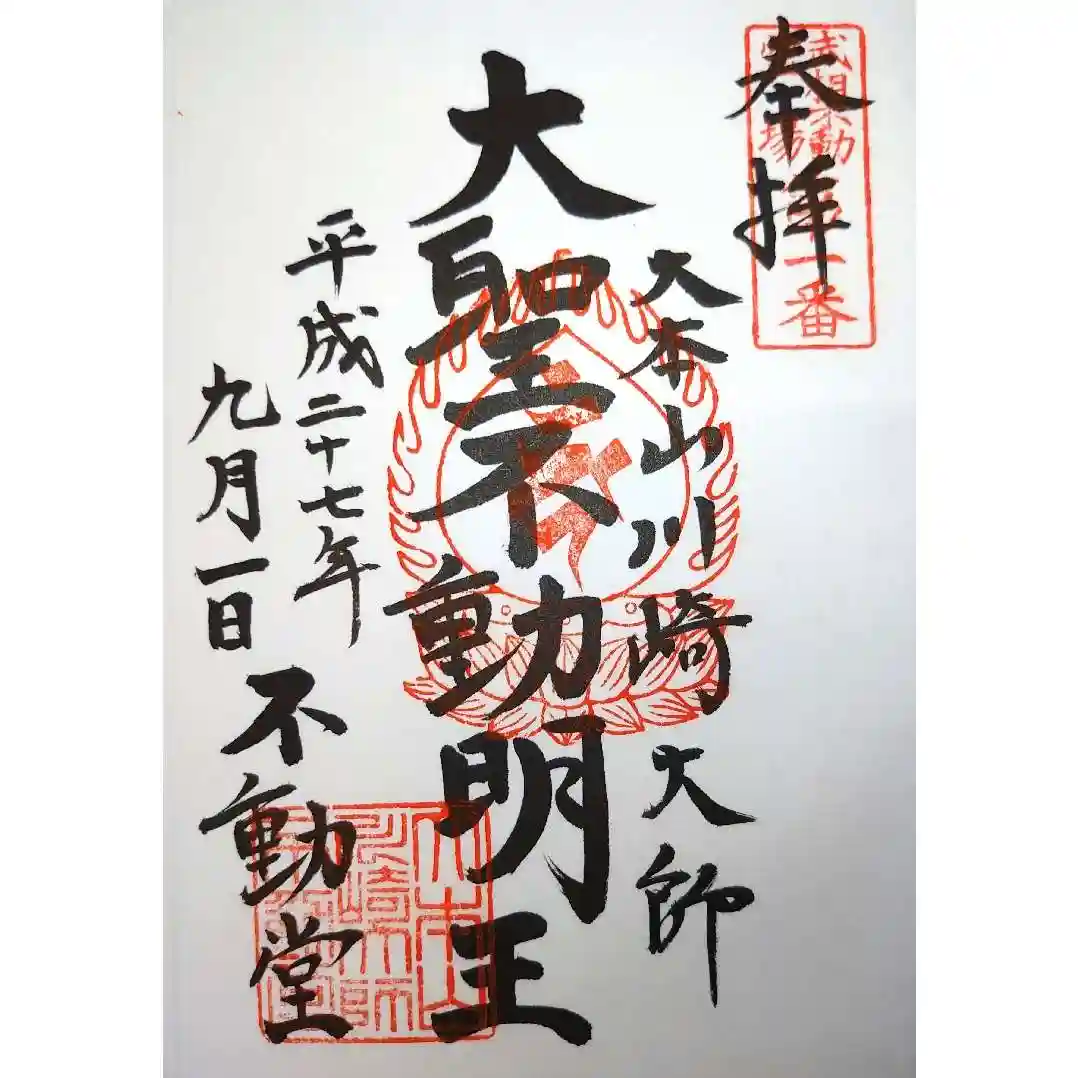 奉拝
武相不動
第一番
大本山川崎大師
大聖不動明王
平成二十七年
九月一日
不動堂